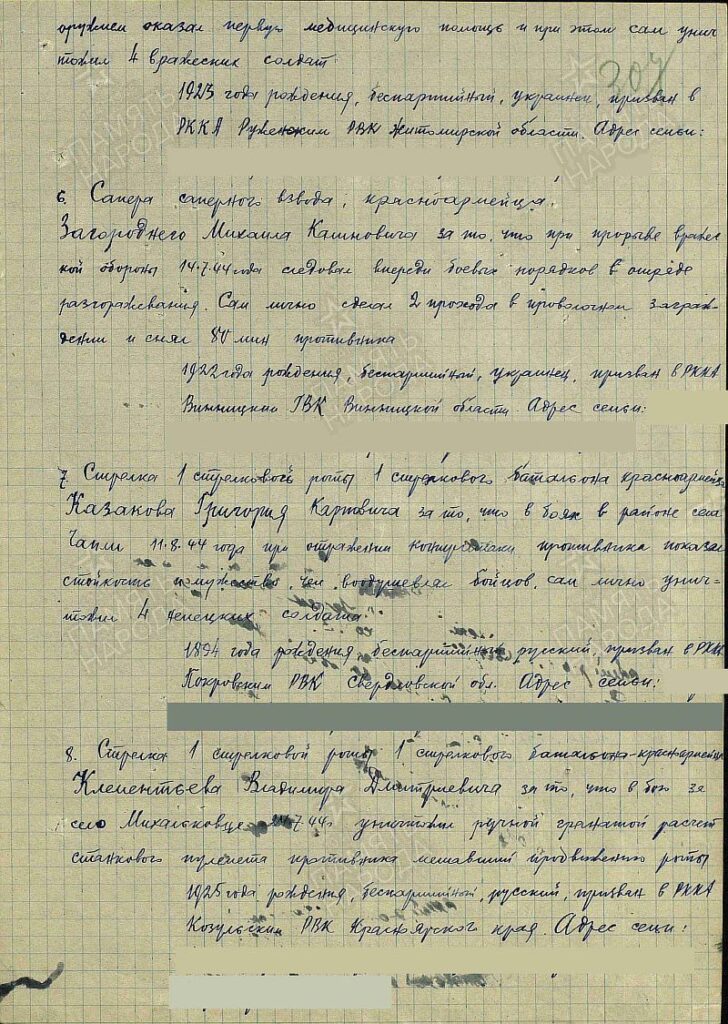 оружием оказал первую медицинскую помощь и при этом сам унич
тожил 4 вражеских солдат
307
1923 года рождения, беспартийный, украинец, призван в
РККА Ружинским РВК Житомирской области. Адрес семьи:
6. Сапера саперного взвода, красноармейца
Загороднего Михаила Каиновича за то, что при прорыве вражес
кой обороны 14.7.44 года следовал впереди боевых порядков в отряде
разграждения. Сам лично сделал 2 прохода в проволочном заграж-
дении и снял 80 мин противника
1922 года рождения, беспартийный, украинец, призван в РККА
Винницким ГВК Винницкой области. Адрес семьи:
7. Стрелка 1 стрелковой роты 1 стрелкового батальона красноармейца
Казакова Григория Карповича за то, что в боях в районе села
Чапли 11.8.44 года при отражении контратаки противника показал
стойкость и мужество, чем воодушевлял бойцов, сам лично унич-
тожил 4 немецких солдата
1894 года рождения беспартийный русский, призван в РККА
Покровским РВК Свердловской обл. Адрес семьи:
8. Стрелка 1 стрелковой роты 1 стрелкового батальона-красноармейца
Клементьева Владимира Дмитриевича за то, что в бою за
село Михальковце 7.44г уничтожил ручной гранатой расчет
станкового пулемета противника мешавший продвижению роты
1925 года рождения, беспартийный, русский, призван в РККА
Козульским РВК Красноярского края Адрес семьи:
ПАМЯТЬ НАРОДА